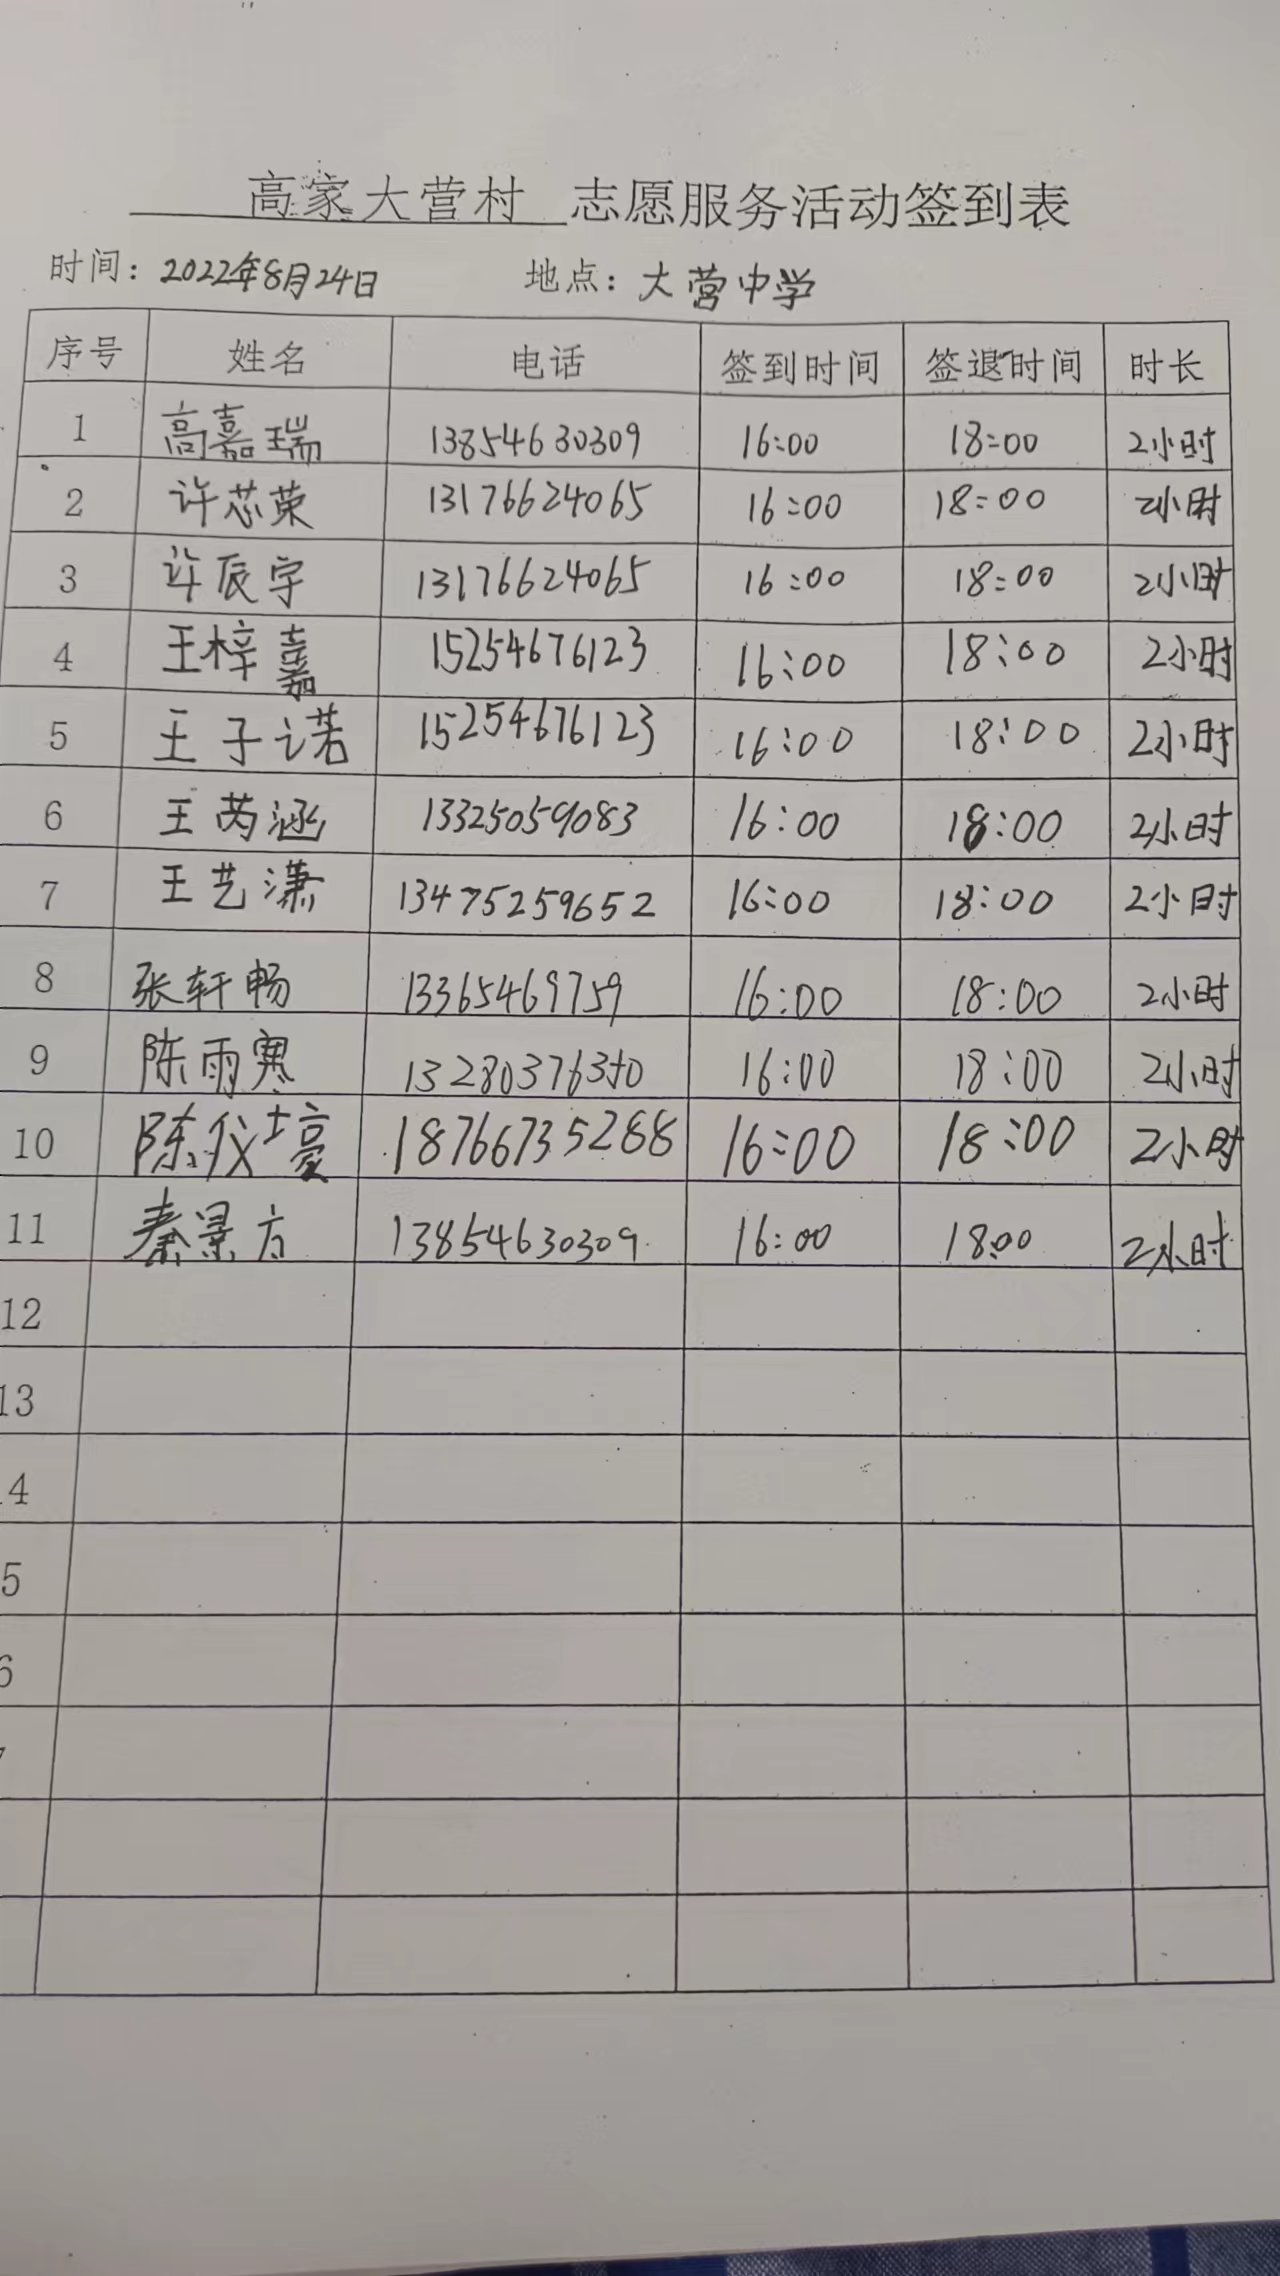 高家大营村 志愿服务活动签到表
时间：2022年8月24日 地点：大营中学
序号 姓名 电话 签到时间 签退时间 时长
1 高嘉瑞 13854630309 16:00 18:00 2小时
2 许芯荣 13176624065 16:00 18:00 2小时
3 许辰宇 13176624065 16:00 18:00 2小时
4 王梓嘉 15254676123 16:00 18:00 2小时
5 王子诺 15254676123 16:00 18:00 2小时
6 王芮涵 13325059083 16:00 18:00 2小时
7 王艺潇 13475259652 16:00 18:00 2小时
8 张轩畅 13365469759 16:00 18:00 2小时
9 陈雨寒 13280376350 16:00 18:00 2小时
10 陈仪壕 18766735288 16:00 18:00 2小时
11 秦景方 13854630309 16:00 18:00 2小时
12
13
4
5
6